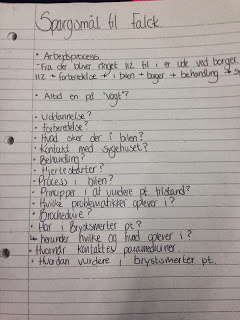 Spørgsmål til falck
• Arbejdsprocess
- Fra der bliver ringet 112 til i er ude ved borger
112 → forberedelse → i bilen → borger → behandling →
• Altid en på "vagt"?
• Uddannelse?
• forberedelse?
• Hvad sker der i bilen?
• Kontakt med sygehuset?
• Behandling?
• Hjertestarter?
• Process i bilen?
• Principper i at vurdere pt. tilstand?
• Hvilke problematikker oplever i?
• Brochedure?
• Har i Brystsmerter pt.?
herunder hvilke og hvad oplever i?
• Hvornår kontaktes paramediciner.
• Hvordan vurdere i brystsmerter pt.